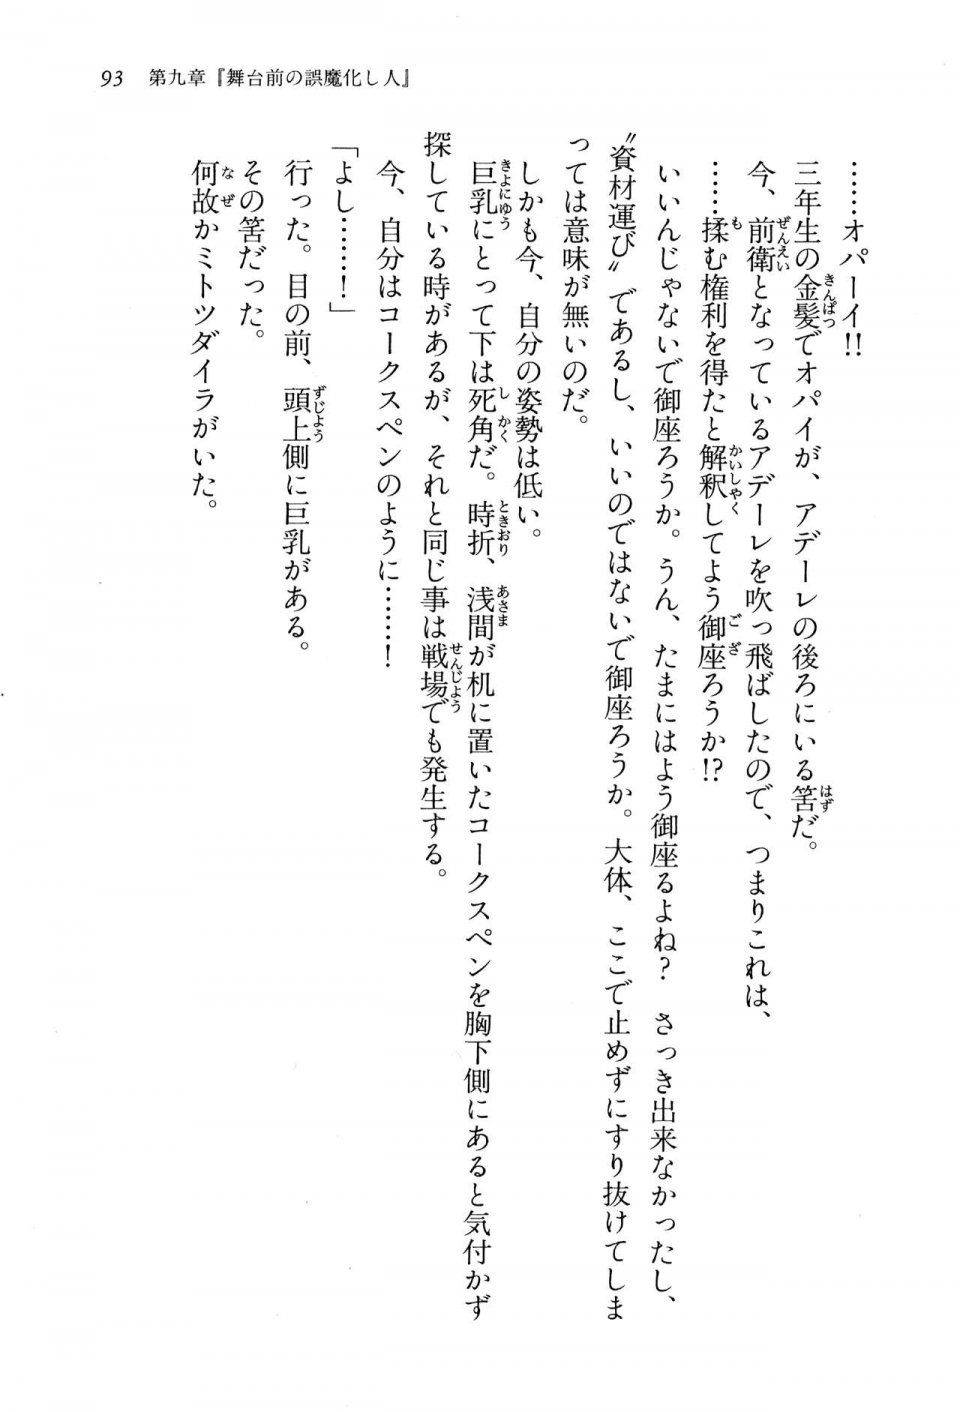 93 第九章『舞台前の誤魔化し人』
……オパーイ!!
三年生の金髪でオパイが、アデーレの後ろにいる筈だ。
今、前衛となっているアデーレを吹っ飛ばしたので、つまりこれは、
……揉む権利を得たと解釈してよう御座ろうか!?
いいんじゃないで御座ろうか。うん、たまにはよう御座るよね? さっき出来なかったし、
〝資材運び〟であるし、いいのではないで御座ろうか。大体、ここで止めずにすり抜けてしま
っては意味が無いのだ。
しかも今、自分の姿勢は低い。
巨乳にとって下は死角だ。時折、浅間が机に置いたコークスペンを胸下側にあると気付かず
探している時があるが、それと同じ事は戦場でも発生する。
今、自分はコークスペンのように……!
「よし……!」
行った。目の前、頭上側に巨乳がある。
その筈だった。
何故かミトツダイラがいた。